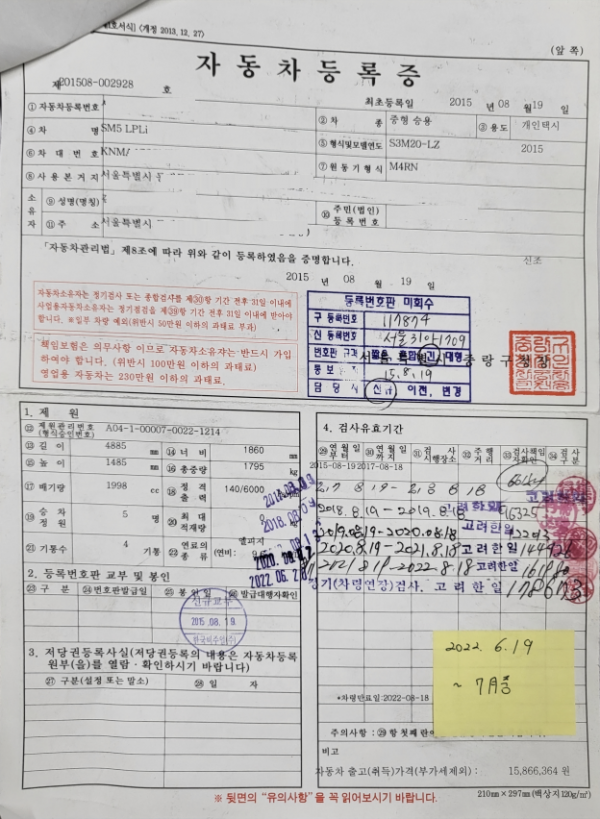 호서식] (개정 2013. 12. 27)
(앞 쪽)
자동차등록증
제201508-002928 호
최초등록일 2015 년 08 월 19 일
① 자동차등록번호 ② 차 종 중형 승용 ③ 용도 개인택시
④ 차 명 SM5 LPLi ⑤ 형식및모델연도 S3M20-LZ 2015
⑥ 차 대 번 호 KNM ⑦ 원동기형식 M4RN
⑧ 사 용 본 거 지 서울특별시
소유자 ⑨ 성명(명칭) ⑩ 주민(법인)등록번호
⑪ 주 소 서울특별시
「자동차관리법」 제8조에 따라 위와 같이 등록하였음을 증명합니다.
신조
2015 년 08 월 19 일
자동차소유자는 정기검사 또는 종합검사를 제㉚항 기간 전후 31일 이내에
사업용자동차소유자는 정기점검을 제㉚항 기간 전후 31일 이내에 받아야
합니다. ※일부 차량 예외(위반시 50만원 이하의 과태료 부과)
책임보험은 의무사항 이므로 자동차소유자는 반드시 가입
하여야 합니다. (위반시 100만원 이하의 과태료)
영업용 자동차는 230만원 이하의 과태료.
등록번호판 미회수
구 등록번호 117874
신 등록번호 서울31아1709
번호판 규격
통 보 15.8.19
담 당 신규 이전, 변경
중랑구청장
1. 제 원
㉒ 제원관리번호 (형식승인번호) A04-1-00007-0022-1214
⑬ 길 이 4885 mm ⑭ 너 비 1860 mm
⑮ 높 이 1485 mm ⑯ 총중량 1795 kg
⑰ 배기량 1998 cc ⑱ 정격출력 140/6000
⑲ 승차정원 5 명 ⑳ 최대적재량
㉑ 기통수 4 기통 ㉒ 연료의종류 엘피지 (연비:
2020.08.
2022.06.2
2. 등록번호판 교부 및 봉인
㉓ 구 분 ㉔ 번호판발급일 ㉕ 봉인일 ㉖ 발급대행자확인
신규교부
2015.08.19.
3. 저당권등록사실(저당권등록의 내용은 자동차등록
원부(을)를 열람ㆍ확인하시기 바랍니다)
㉗ 구분(설정 또는 말소) ㉘ 일 자
4. 검사유효기간
㉙ 연월일부터 ㉚ 연월일까지 ㉛ 검사시행장소 ㉜ 주행거리 ㉝ 검사책임자확인 ㉞ 검사구분
2015-08-19 2017-08-18
2018.8.19~2019.8.18
2019.08.19~2020.08.18 고려한일
2020.8.19~2021.8.18 고려한일
2021.8.19~2022.8.18 고려한일
정기(차령연장)검사. 고려한일 178673
2022. 6.19
~ 7月
*차령만료일:2022-08-18
주의사항 : ㉙ 항 첫째 란
비고
자동차 출고(취득)가격(부가세제외) : 15,866,364 원
※ 뒷면의 "유의사항"을 꼭 읽어보시기 바랍니다.
210㎜×297㎜(백상지120g/㎡)